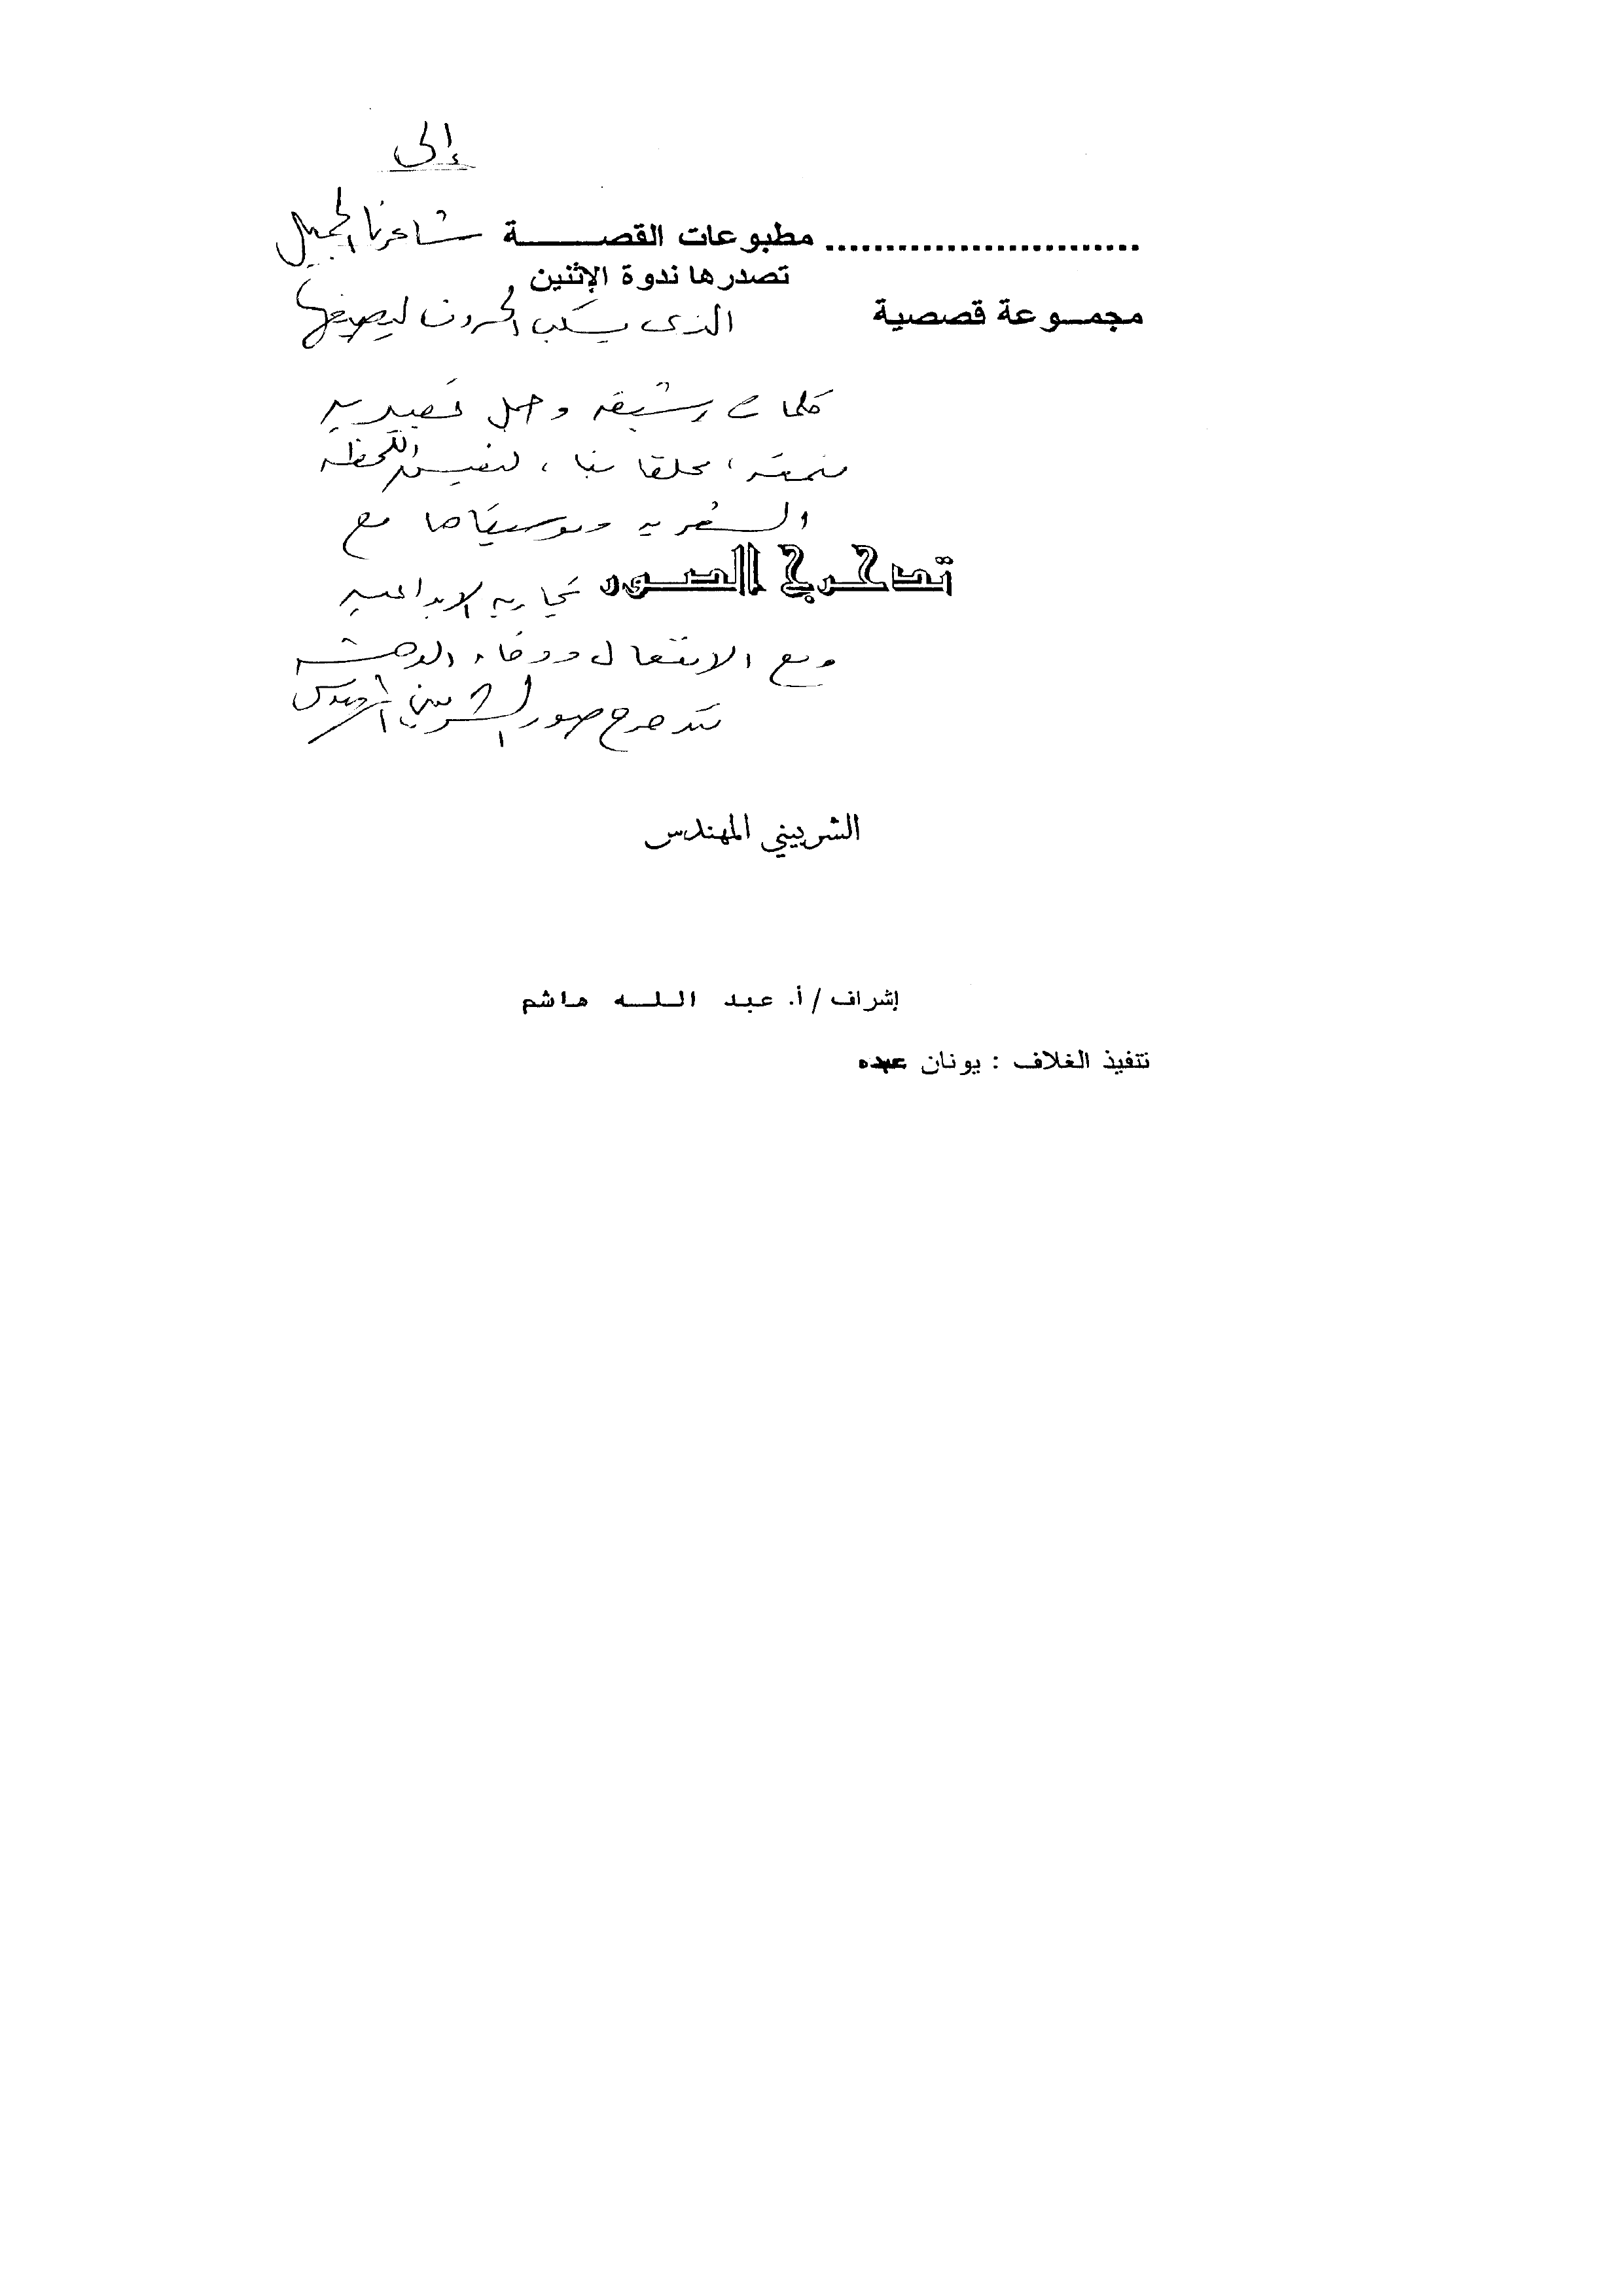 إلى
.......................... مطبوعات القصة شاعرنا الجميل
تصدرها ندوة الإثنين
مجموعة قصصية
الذى يسكب الحروف ليصيغها
كلمات رشيقه وجمل تعبيريه
منمقه، محلقا بنا، لنعيش اللحظه
الشعريه وموسيقاها مع
تدحرج الصور
تجاربه الإبداعيه
ومع الانفعال ودفء الدهشه
تتدحرج صور الشربيني المهندس
الشربيني المهندس
إشراف / أ. عبد الله هاشم
تنفيذ الغلاف : يونان عبده